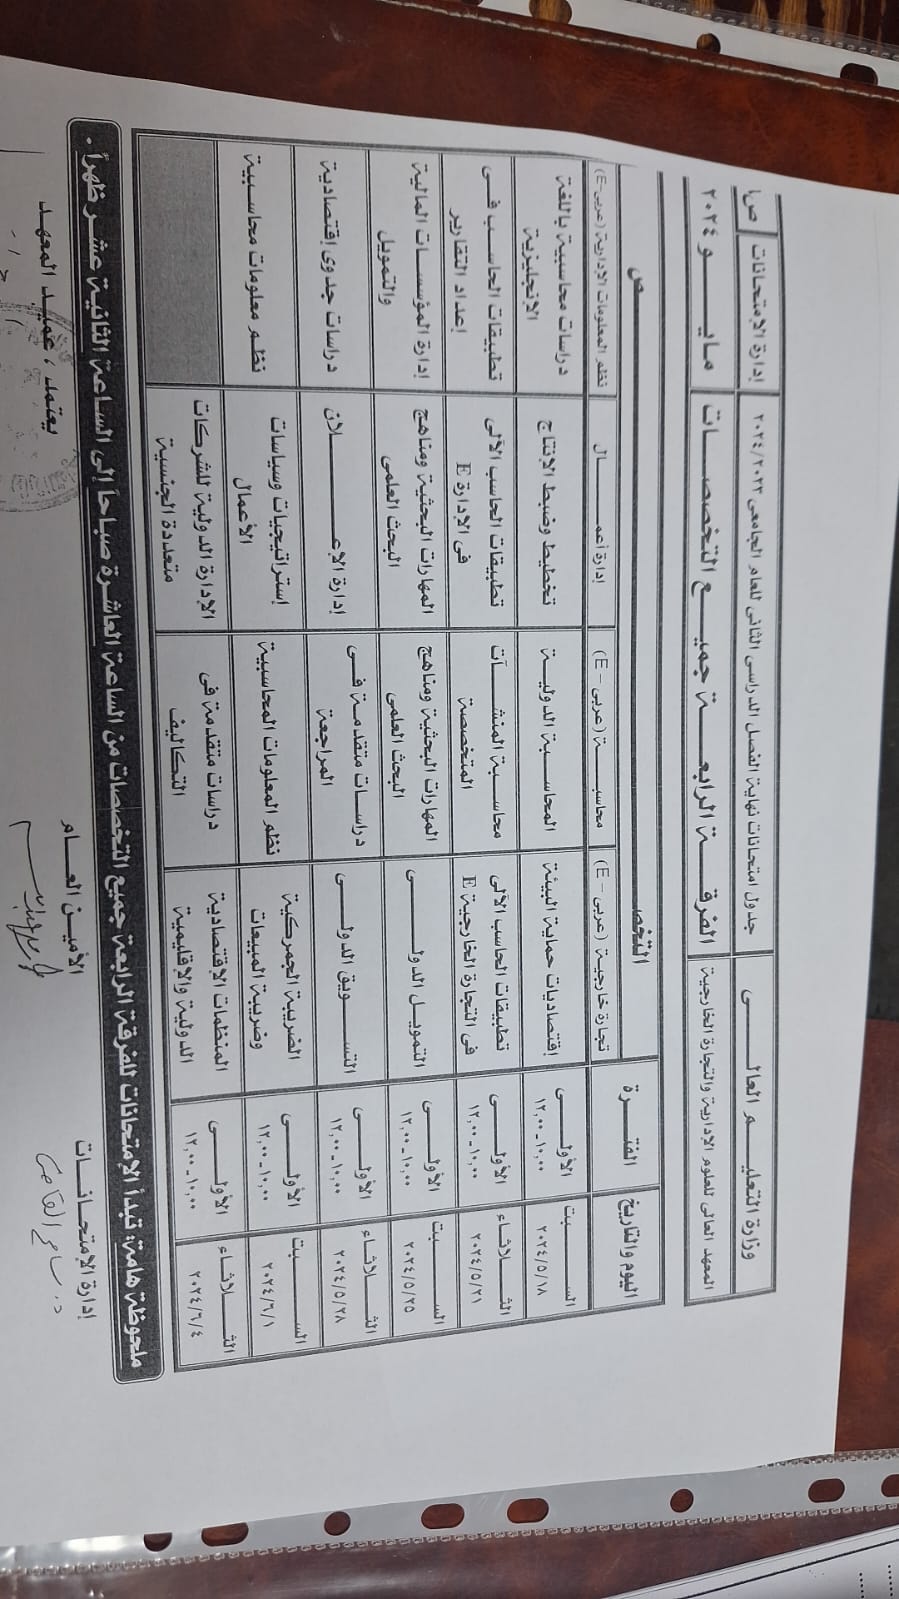 وزارة التعليـــم العالـــى
جدول امتحانات نهاية الفصل الدراسى الثانى للعام الجامعى ٢٠٢٤/٢٠٢٣
إدارة الإمتحانات
ص١
المعهد العالى للعلوم الادارية والتجارة الخارجية
الفرقـــة الرابعـــة جميـــع التخصصـــات
مايـــو ٢٠٢٤
اليوم والتاريخ
الفتـرة
التخصـــص
تجارة خارجية (عربى – E)
محاسبـــة (عربى – E)
إدارة أعمـــال
نظم المعلومات الإدارية (عربى-E)
الســـبت
٢٠٢٤/٥/١٨
الأولـــى
١٠,٠٠-١٢,٠٠
إقتصاديات حماية البيئة
المحاسـبة الدوليـة
تخطيط وضبط الإنتاج
دراسات محاسبية باللغة
الإنجليزية
الثـــلاثاء
٢٠٢٤/٥/٢١
الأولـــى
١٠,٠٠-١٢,٠٠
تطبيقات الحاسب الآلى
فى التجارة الخارجية E
محاسـبة المنشـآت
المتخصصة
تطبيقات الحاسب الآلى
فى الادارة E
تطبيقات الحاسب فـى
إعداد التقارير
الســـبت
٢٠٢٤/٥/٢٥
الأولـــى
١٠,٠٠-١٢,٠٠
التمويـل الدولـــى
المهارات البحثية ومناهج
البحث العلمى
المهارات البحثية ومناهج
البحث العلمى
إدارة المؤسسات المالية
والتمويل
الثـــلاثاء
٢٠٢٤/٥/٢٨
الأولـــى
١٠,٠٠-١٢,٠٠
التســـويق الدولـــى
دراسـات متقدمـة فـى
المراجعة
إدارة الاعـــلان
دراسات جدوى إقتصادية
الســـبت
٢٠٢٤/٦/١
الأولـــى
١٠,٠٠-١٢,٠٠
الضريبة الجمركية
وضريبة المبيعات
نظم المعلومات المحاسبية
إستراتيجيات وسياسات
الأعمال
نظم معلومات محاسبية
الثـــلاثاء
٢٠٢٤/٦/٤
الأولـــى
١٠,٠٠-١٢,٠٠
المنظمات الإقتصادية
الدولية والاقليمية
دراسات متقدمة فى
التكاليف
الإدارة الدولية للشركات
متعددة الجنسية
ملحوظة هامة: تبدأ الامتحانات للفرقة الرابعة جميع التخصصات من الساعة العاشرة صباحاً إلى الساعة الثانية عشر ظهراً.
إدارة الإمتحانـــات
الأميـن العـــام
يعتمد، عميـد المعهـد